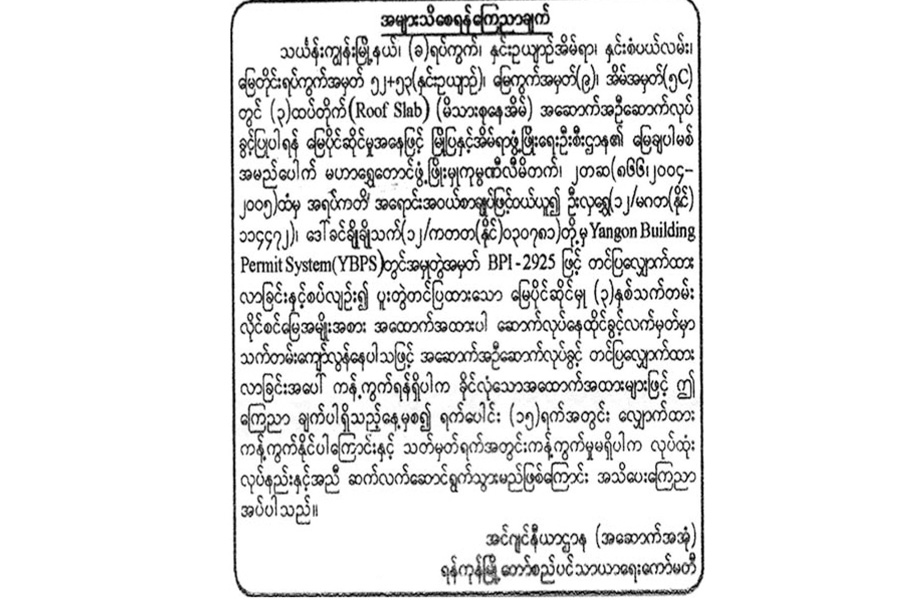 အများသိစေရန်ကြေညာချက်
သင်္ဃန်းကျွန်းမြို့နယ်၊ (ခ)ရပ်ကွက်၊ နှင်းဥယျာဉ်အိမ်ရာ၊ နှင်းစံပယ်လမ်း၊
မြေတိုင်းရပ်ကွက်အမှတ် ၅၂+၅၃(နှင်းဥယျာဉ်)၊ မြေကွက်အမှတ်(၉)၊ အိမ်အမှတ်(၅C)
တွင် (၃)ထပ်တိုက်(Roof Slab) (မိသားစုနေအိမ်) အဆောက်အဦဆောက်လုပ်
ခွင့်ပြုပါရန် မြေပိုင်ဆိုင်မှုအနေဖြင့် မြို့ပြနှင့်အိမ်ရာဖွံ့ဖြိုးရေးဦးစီးဌာန၏ မြေချပါမစ်
အမည်ပေါက် မဟာရွှေတောင်ဖွံ့ဖြိုးမှုကုမ္ပဏီလီမိတက်၊ ၂တဆ(၈၆၆၊၂၀၀၄–
၂၀၀၅)ထံမှ အရပ်ကတိ အရောင်းအဝယ်စာချုပ်ဖြင့်ဝယ်ယူ၍ ဦးလှရွှေ(၁၂/မဂတ(နိုင်)
၁၁၄၄၇၂)၊ ဒေါ်ခင်ချိုချိုသက်(၁၂/ကတတ(နိုင်)၀၃၀၇၈၁)တို့မှ Yangon Building
Permit System(YBPS)တွင်အမှုတွဲအမှတ် BPI - 2925 ဖြင့် တင်ပြလျှောက်ထား
လာခြင်းနှင့်စပ်လျဉ်း၍ ပူးတွဲတင်ပြထားသော မြေပိုင်ဆိုင်မှု (၃)နှစ်သက်တမ်း
လိုင်စင်မြေအမျိုးအစား အထောက်အထားပါ ဆောက်လုပ်နေထိုင်ခွင့်လက်မှတ်မှာ
သက်တမ်းကျော်လွန်နေပါသဖြင့် အဆောက်အဦဆောက်လုပ်ခွင့် တင်ပြလျှောက်ထား
လာခြင်းအပေါ် ကန့်ကွက်ရန်ရှိပါက ခိုင်လုံသောအထောက်အထားများဖြင့် ဤ
ကြေညာ ချက်ပါရှိသည့်နေ့မှစ၍ ရက်ပေါင်း (၁၅)ရက်အတွင်း လျှောက်ထား
ကန့်ကွက်နိုင်ပါကြောင်းနှင့် သတ်မှတ်ရက်အတွင်းကန့်ကွက်မှုမရှိပါက လုပ်ထုံး
လုပ်နည်းနှင့်အညီ ဆက်လက်ဆောင်ရွက်သွားမည်ဖြစ်ကြောင်း အသိပေးကြေညာ
အပ်ပါသည်။
အင်ဂျင်နီယာဌာန (အဆောက်အအုံ)
ရန်ကုန်မြို့တော်စည်ပင်သာယာရေးကော်မတီ